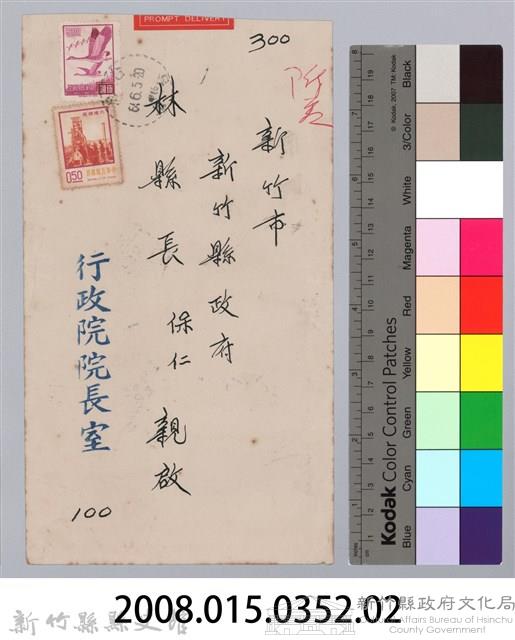 PROMPT DELIVERY
300
新竹市
新竹縣政府
林縣長 保仁 親啟
行政院院長室
100
64.6.5.20
0.50
Black
3/Color
White
Magenta
Red
Yellow
Green
Cyan
Blue
© Kodak, 2007 TM: Kodak
Kodak Color Control Patches
2008.015.0352.02
新竹縣縣史館
新竹縣政府文化局
Cultural Affairs Bureau of Hsinchu
County Government